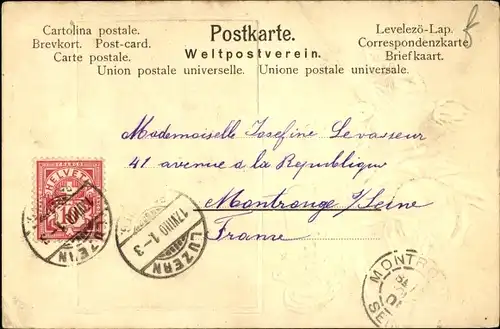 Cartolina postale.
Brevkort. Post-card.
Carte postale.
Postkarte.
Weltpostverein.
Levelező-Lap.
Correspondenzkarte
Briefkaart.
Union postale universelle. Unione postale universale.
Mademoiselle Josefine Levasseur
41 avenue de la République
Montrouge s/Seine
France
HELVETIA
10
LUZERN
LUZERN
1-3
MONTR
SE